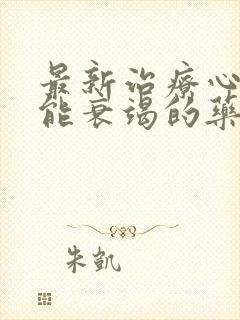 最新治療心
能衰竭的藥
朱凱